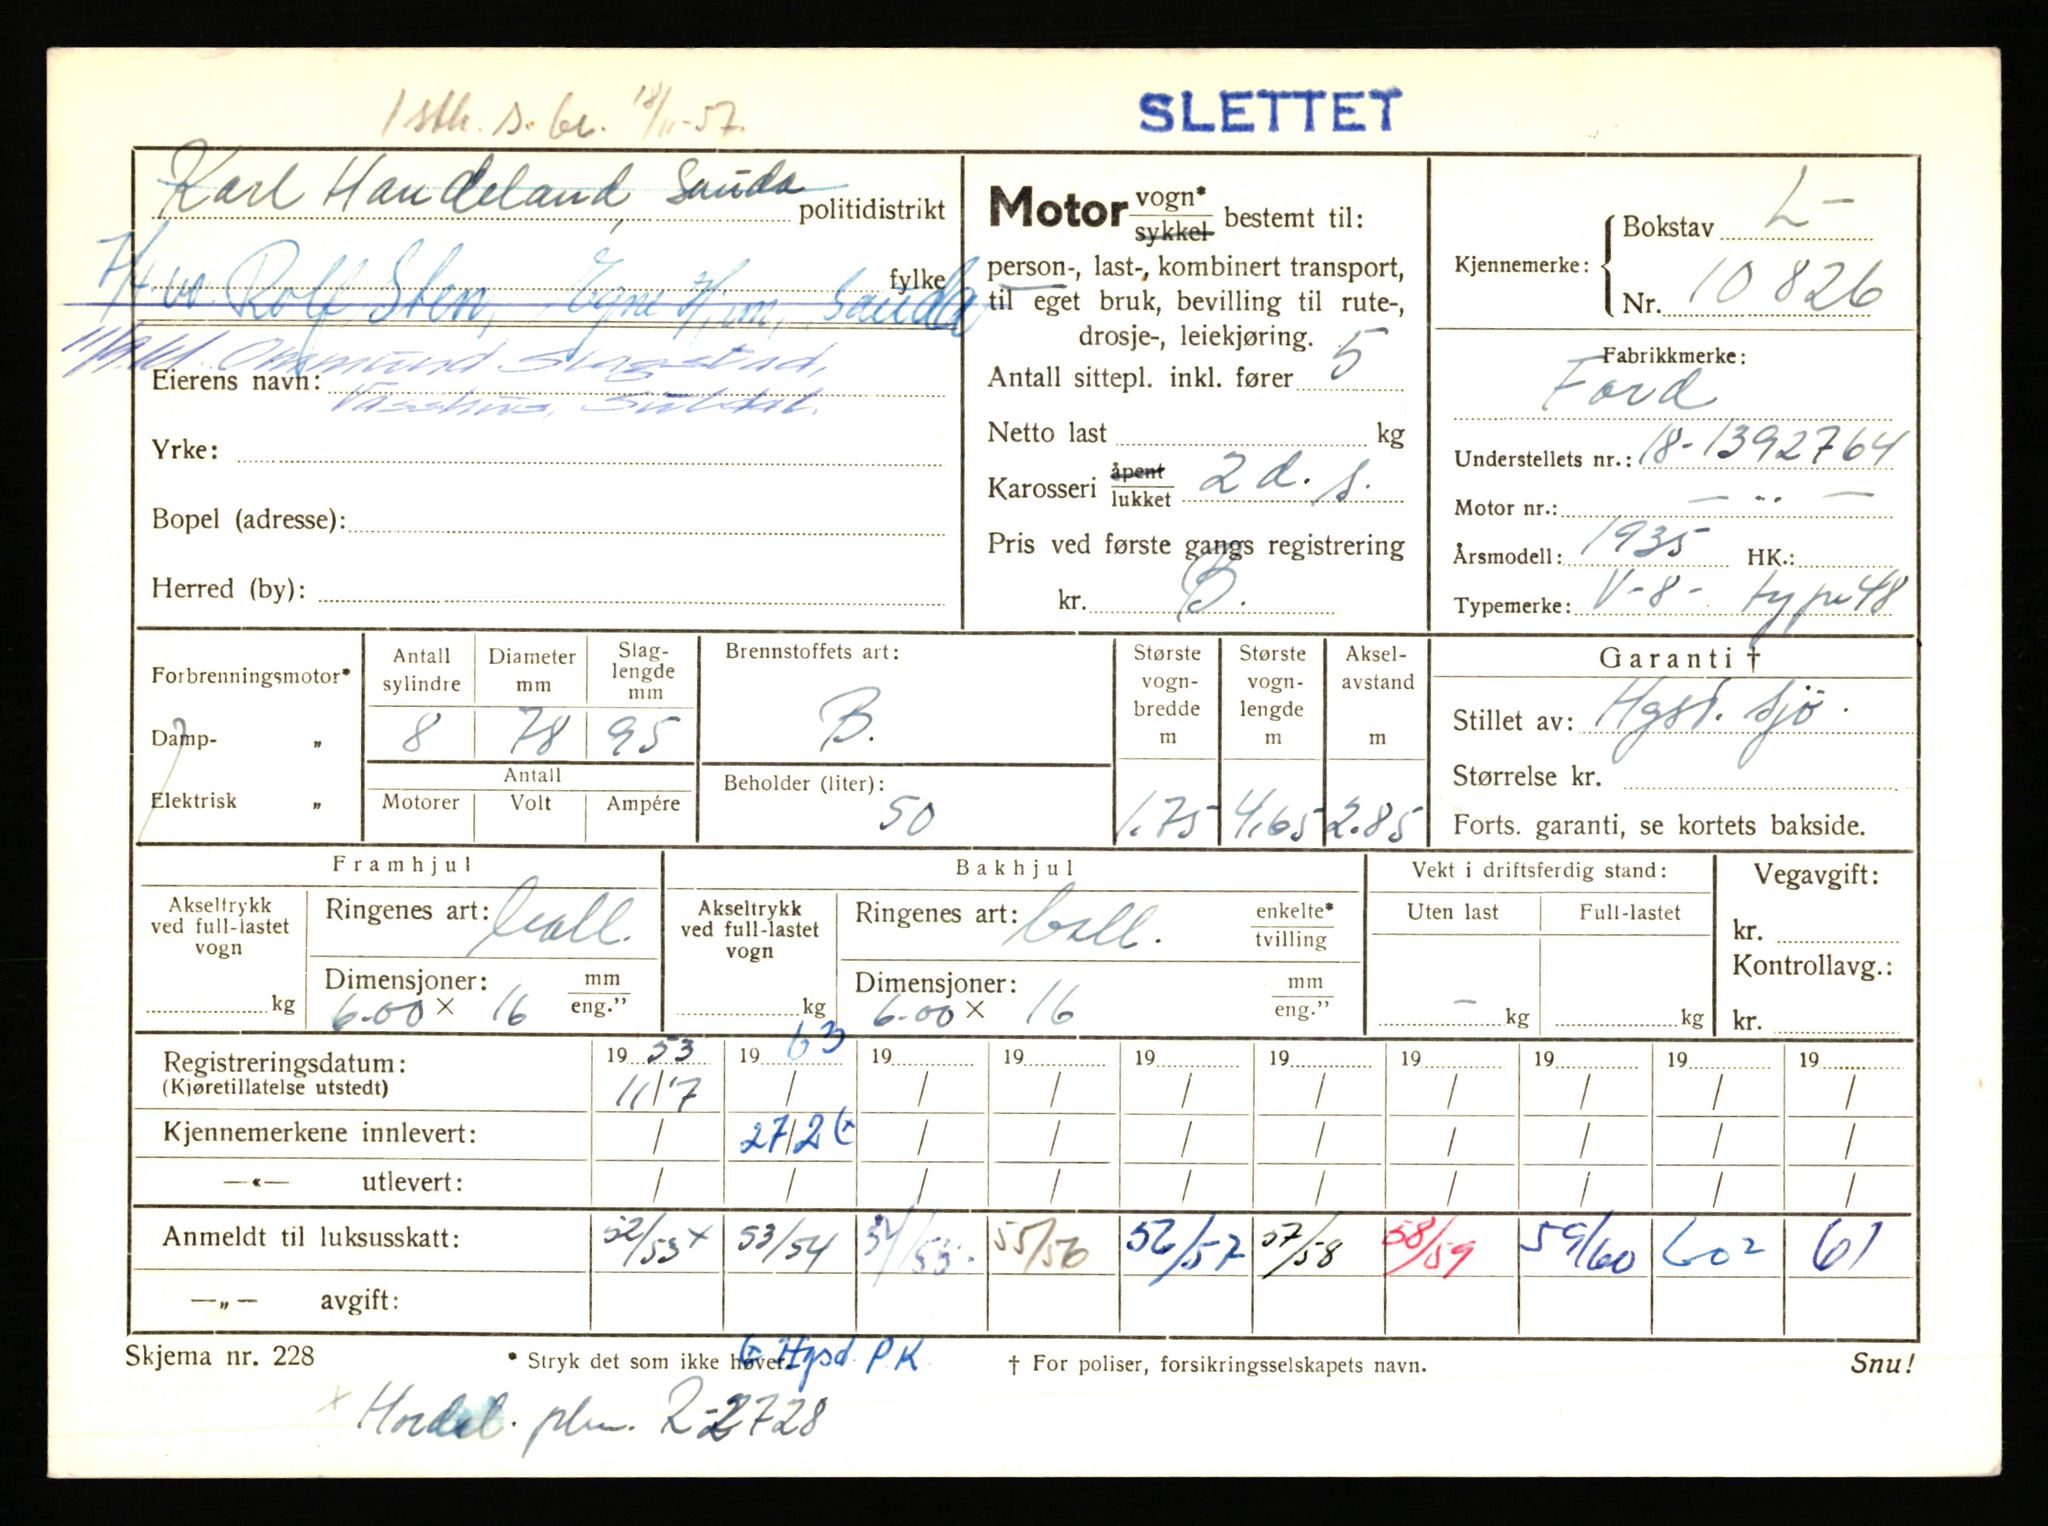 1 stk. s. br. 18/11-57.
SLETTET
Karl Handeland, Sauda politidistrikt
Rolf Sten, Egne Hjem, Sauda fylke
Ommund Slagstad,
Eierens navn:
Vasshus, Suldal.
Yrke:
Bopel (adresse):
Herred (by):
Motor vogn* sykkel bestemt til:
person-, last-, kombinert transport,
til eget bruk, bevilling til rute-,
drosje-, leiekjøring.
Antall sittepl. inkl. fører 5
Netto last kg
Karosseri åpent lukket 2 d. s.
Pris ved første gangs registrering
kr. B.
Kjennemerke: Bokstav L-
Nr. 10826
Fabrikkmerke:
Ford
Understellets nr.: 18-1392764
Motor nr.: — „ —
Årsmodell: 1935 HK.:
Typemerke: V-8- type 48
Forbrenningsmotor*
Damp- „
Elektrisk „
Antall sylindre Diameter mm Slaglengde mm
8 78 95
Antall
Motorer Volt Ampére
Brennstoffets art:
B.
Beholder (liter):
50
Største vognbredde m
1.75
Største vognlengde m
4,65
Akselavstand m
2.85
Garanti †
Stillet av: Hgsd. sjø.
Størrelse kr.
Forts. garanti, se kortets bakside.
Framhjul
Akseltrykk ved full-lastet vogn
kg
Ringenes art: ball.
Dimensjoner: mm
6.00 × 16 eng.”
Bakhjul
Akseltrykk ved full-lastet vogn
kg
Ringenes art: ball. enkelte* tvilling
Dimensjoner: mm
6.00 × 16 eng.”
Vekt i driftsferdig stand:
Uten last Full-lastet
- kg kg
Vegavgift:
kr.
Kontrollavg.:
kr.
Registreringsdatum: 19 53 19 63 19 19 19 19 19 19 19 19
(Kjøretillatelse utstedt) 11/7 / / / / / / / / /
Kjennemerkene innlevert: / 27/2 / / / / / / / /
—«— utlevert: / / / / / / / / / /
Anmeldt til luksusskatt: 52/53 x 53/54 54/55. 55/56 56/57 57/58 58/59 59/60 60 2 61
—„— avgift:
Skjema nr. 228 * Stryk det som ikke høver. Hgsd. P.K. † For poliser, forsikringsselskapets navn. Snu!
x Hordal. R-2728